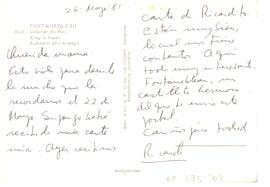 26-Mayo-81
FONTAINEBLEAU
Cabinet du Roi
King's Study
Kabinett des Königs
Querida mama:
Esta sólo para decirte
lo mucho que la
recordamos el 22 de
Mayo. Supongo habrá
recibido una carta
mia. Ayer recibimos
carta de Ricardito.
Están muy bien,
lo cual nos tiene
contentos. Aquí
todo muy interesante.
Fontainebleau, un
castillo hermoso
del que te envio esta
postal.
Ricardo